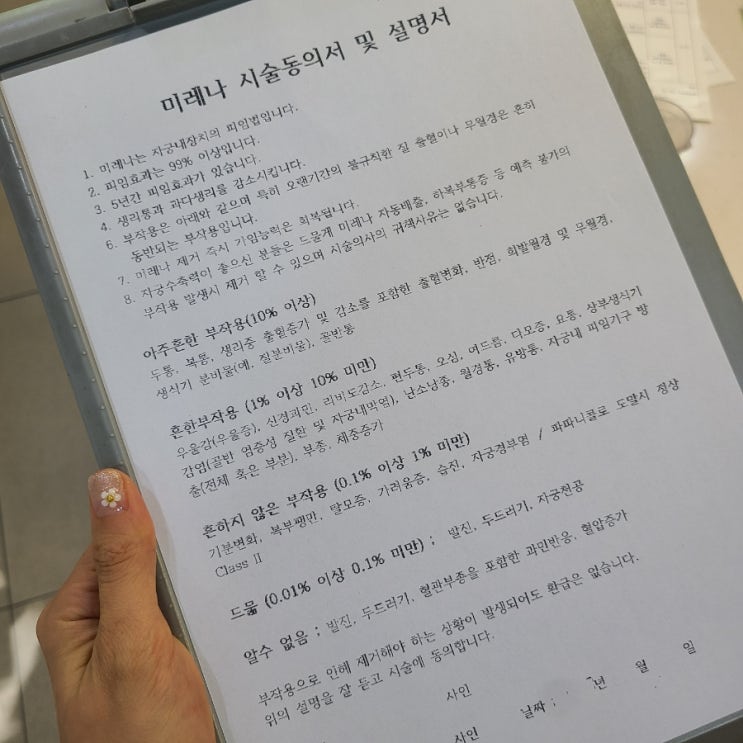 미레나 시술동의서 및 설명서
1. 미레나는 자궁내장치의 피임법입니다.
2. 피임효과는 99% 이상입니다.
3. 5년간 피임효과가 있습니다.
4. 생리통과 과다생리를 감소시킵니다.
6. 부작용은 아래와 같으며 특히 오랜기간의 불규칙한 질 출혈이나 무월경은 흔히
동반되는 부작용입니다.
7. 미레나 제거 즉시 가임능력은 회복됩니다.
8. 자궁수축력이 좋으신 분들은 드물게 미레나 자동배출, 하복부통증 등 예측 불가의
부작용 발생시 제거 할 수 있으며 시술의사의 귀책사유는 없습니다.
아주흔한 부작용(10% 이상)
두통, 복통, 생리중 출혈증가 및 감소를 포함한 출혈변화, 반점, 희발월경 및 무월경,
생식기 분비물(예, 질분비물), 골반통
흔한부작용 (1% 이상 10% 미만)
우울감(우울증), 신경과민, 리비도감소, 편두통, 오심, 여드름, 다모증, 요통, 상부생식기
감염(골반 염증성 질환 및 자궁내막염), 난소낭종, 월경통, 유방통, 자궁내 피임기구 방
출(전체 혹은 부분), 부종, 체중증가
흔하지 않은 부작용 (0.1% 이상 1% 미만)
기분변화, 복부팽만, 탈모증, 가려움증, 습진, 자궁경부염 / 파파니콜로 도말시 정상
Class II
드뭄 (0.01% 이상 0.1% 미만) ; 발진, 두드러기, 자궁천공
알수 없음 ; 발진, 두드러기, 혈관부종을 포함한 과민반응, 혈압증가
부작용으로 인해 제거해야 하는 상황이 발생되어도 환급은 없습니다.
위의 설명을 잘 듣고 시술에 동의합니다.
사인
날짜 ; 년 월 일
사인